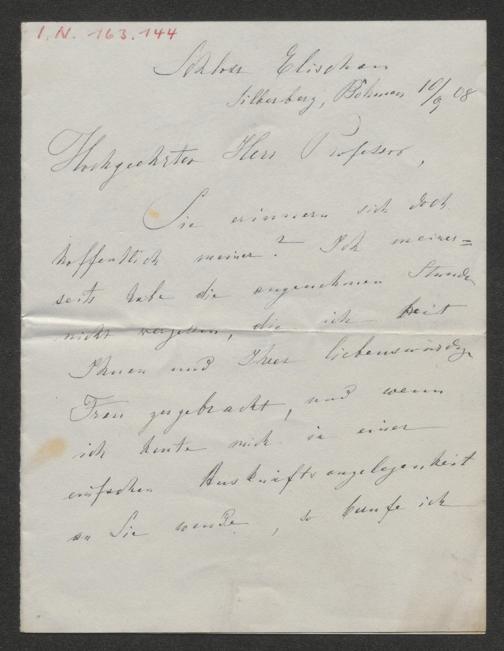 I. N. 163.144
Schloss Elischau
Silberberg, Böhmen 10/9 08
Hochgeehrter Herr Professor,
Sie erinnern sich doch
hoffentlich meiner? Ich meiner=
seits habe die angenehmen Stunden
nicht vergessen, die ich mit
Ihnen und Ihrer liebenswürdigen
Frau zugebracht, und wenn
ich heute mich in einer
einfachen Auskunftsangelegenheit
an Sie wende, so hoffe ich